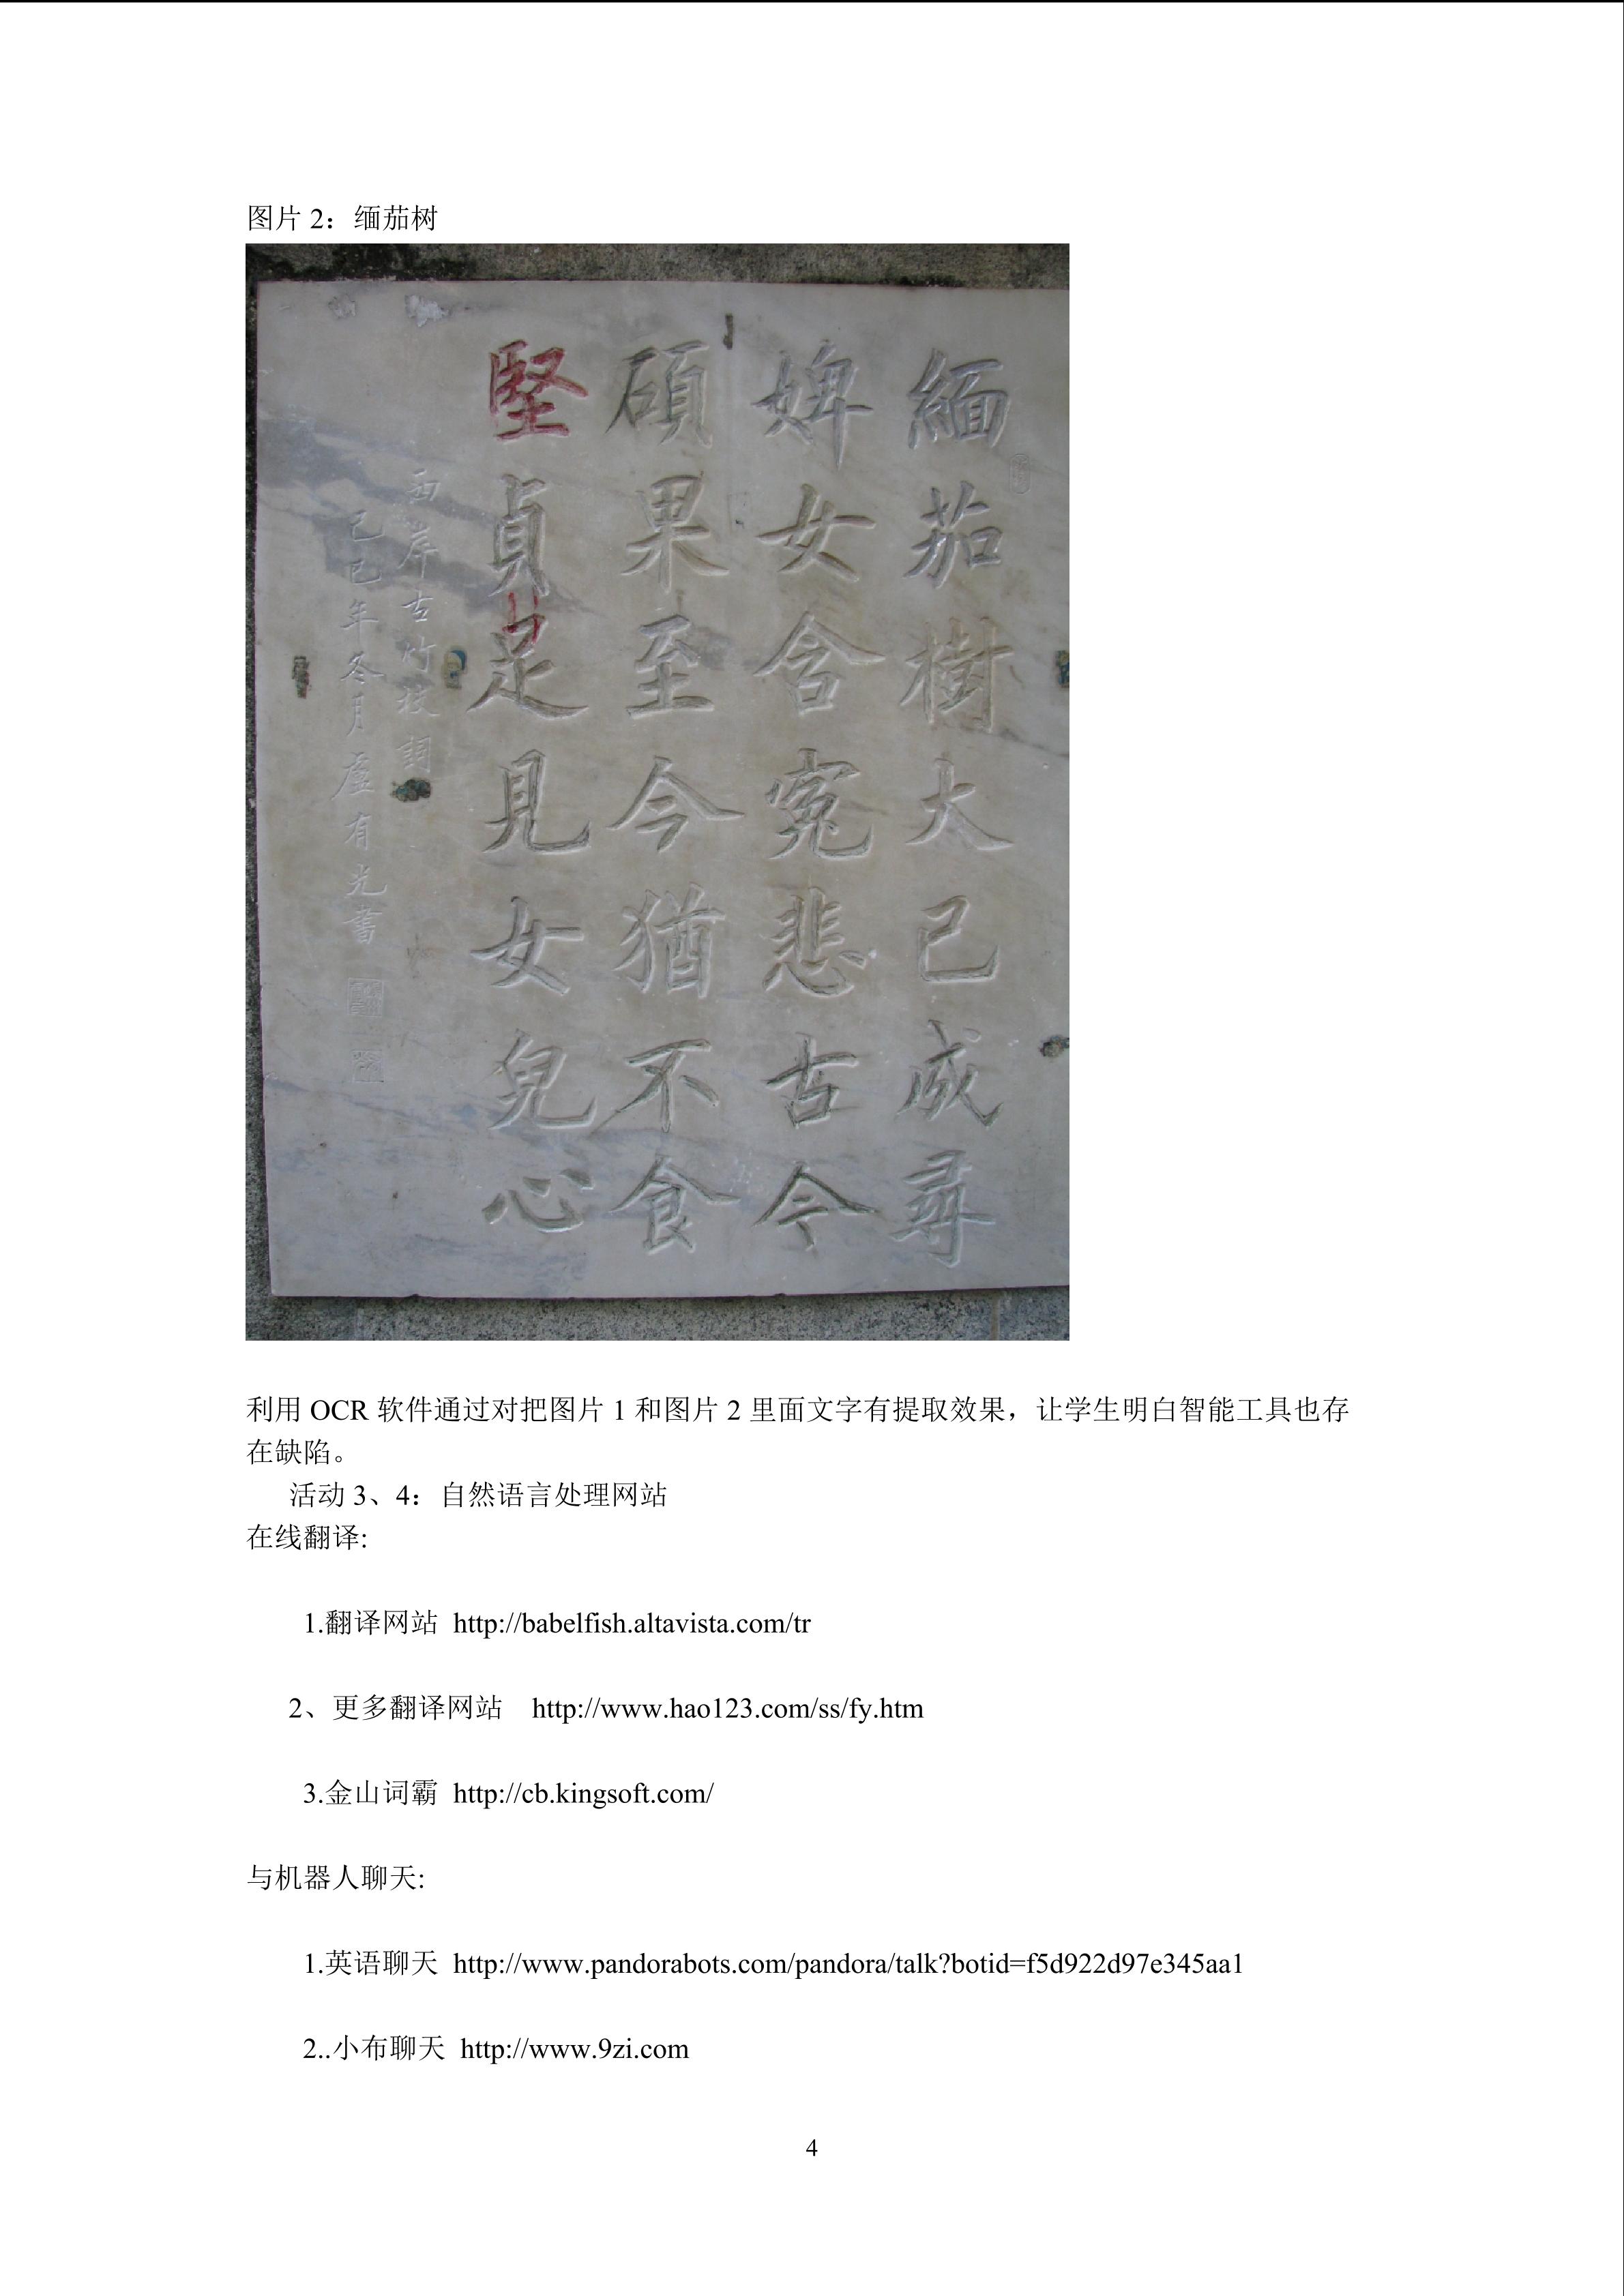 图片 2：缅茄树
緬茄樹大已成尋
婢女含寃悲古今
碩果至今猶不食
堅貞足見女兒心
西岸古竹枝詞
己巳年冬月盧有光書
利用 OCR 软件通过对把图片 1 和图片 2 里面文字有提取效果，让学生明白智能工具也存
在缺陷。
活动 3、4：自然语言处理网站
在线翻译:
1.翻译网站 http://babelfish.altavista.com/tr
2、更多翻译网站 http://www.hao123.com/ss/fy.htm
3.金山词霸 http://cb.kingsoft.com/
与机器人聊天:
1.英语聊天 http://www.pandorabots.com/pandora/talk?botid=f5d922d97e345aa1
2..小布聊天 http://www.9zi.com
4